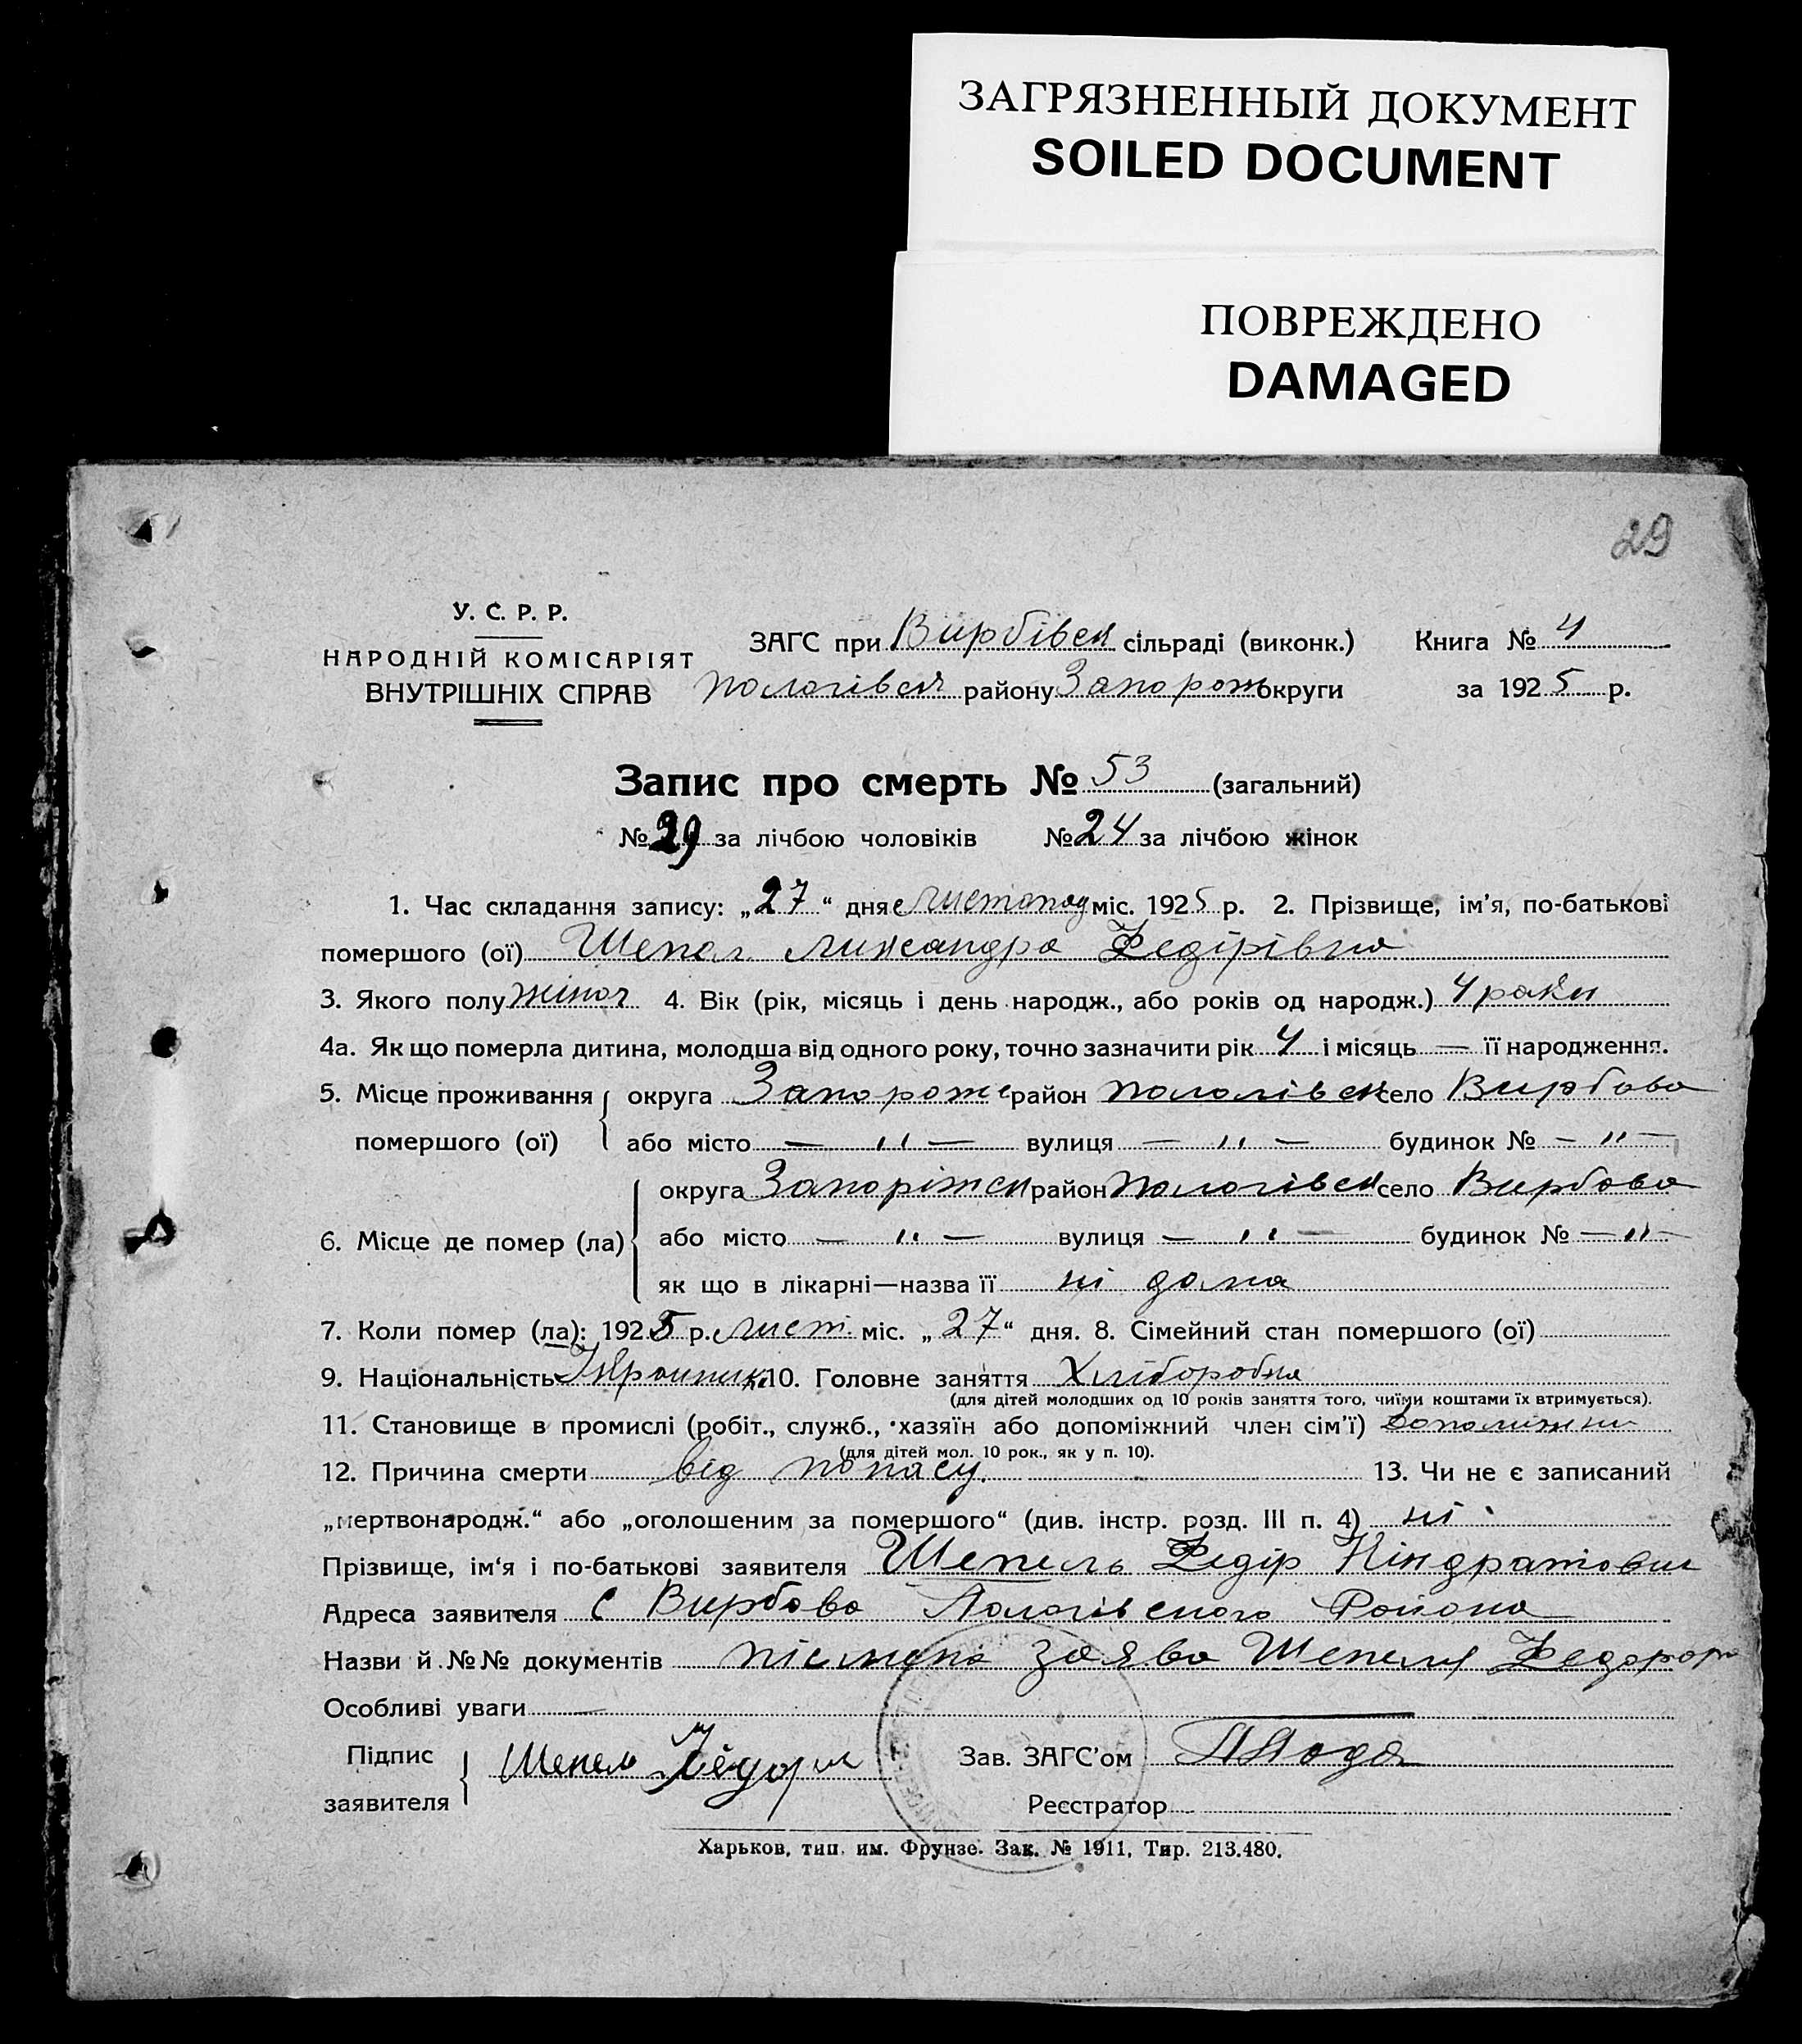 ЗАГРЯЗНЕННЫЙ ДОКУМЕНТ
SOILED DOCUMENT
ПОВРЕЖДЕНО
DAMAGED
29
У. С. Р. Р.
НАРОДНІЙ КОМІСАРІЯТ
ВНУТРІШНІХ СПРАВ
ЗАГС при Вирбівск сільраді (виконк.) Книга № 4
Пологівск району Запорож округи за 1925 р.
Запис про смерть № 53 (загальний)
№ 29 за лічбою чоловіків № 24 за лічбою жінок
1. Час складання запису: „27“ дня листопад міс. 1925 р. 2. Прізвище, ім’я, по-батькові
помершого (ої) Шепел Лихсандра Федірівна
3. Якого полу жіноч 4. Вік (рік, місяць і день народж., або років од народж.) 4 роки
4а. Як що померла дитина, молодша від одного року, точно зазначити рік 4 і місяць — її народження.
5. Місце проживання округа Запорож район Пологівск село Вирбово
помершого (ої) або місто — " — вулиця — " — будинок № — " —
округа Запоріжск район Пологівск село Вирбово
6. Місце де помер (ла) або місто — " — вулиця — " — будинок № — " —
як що в лікарні—назва її ні дома
7. Коли помер (ла): 1925 р. лист. міс. „27“ дня. 8. Сімейний стан помершого (ої)
9. Національність 10. Головне заняття Хліборобна
(для дітей молодших од 10 років заняття того, чиїми коштами їх втримується).
11. Становище в промислі (робіт., служб., хазяїн або допоміжний член сім’ї)
(для дітей мол. 10 рок., як у п. 10).
12. Причина смерти від попасу. 13. Чи не є записаний
„мертвонародж.“ або „оголошеним за помершого“ (див. інстр. розд. III п. 4) ні
Прізвище, ім‘я і по-батькові заявителя Шепель Федір Кіндратович
Адреса заявителя С Вирбово Пологівского Района
Назви й №№ документів заява Шепеля
Особливі уваги —
Підпис
заявителя Шепель Зав. ЗАГС’ом
Реєстратор
Харьков, тип. им. Фрунзе. Зак. № 1911, Тир. 213.480.